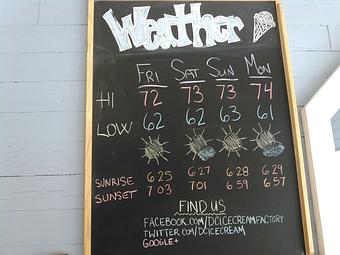 Weather
FRI SAT SUN MON
HI 72 73 73 74
LOW 62 62 63 61
SUNRISE 6:25 6:27 6:28 6:29
SUNSET 7:03 7:01 6:59 6:57
FIND US
FACEBOOK.COM/DCICECREAMFACTORY
TWITTER.COM/DCICECREAM
GOOGLE+